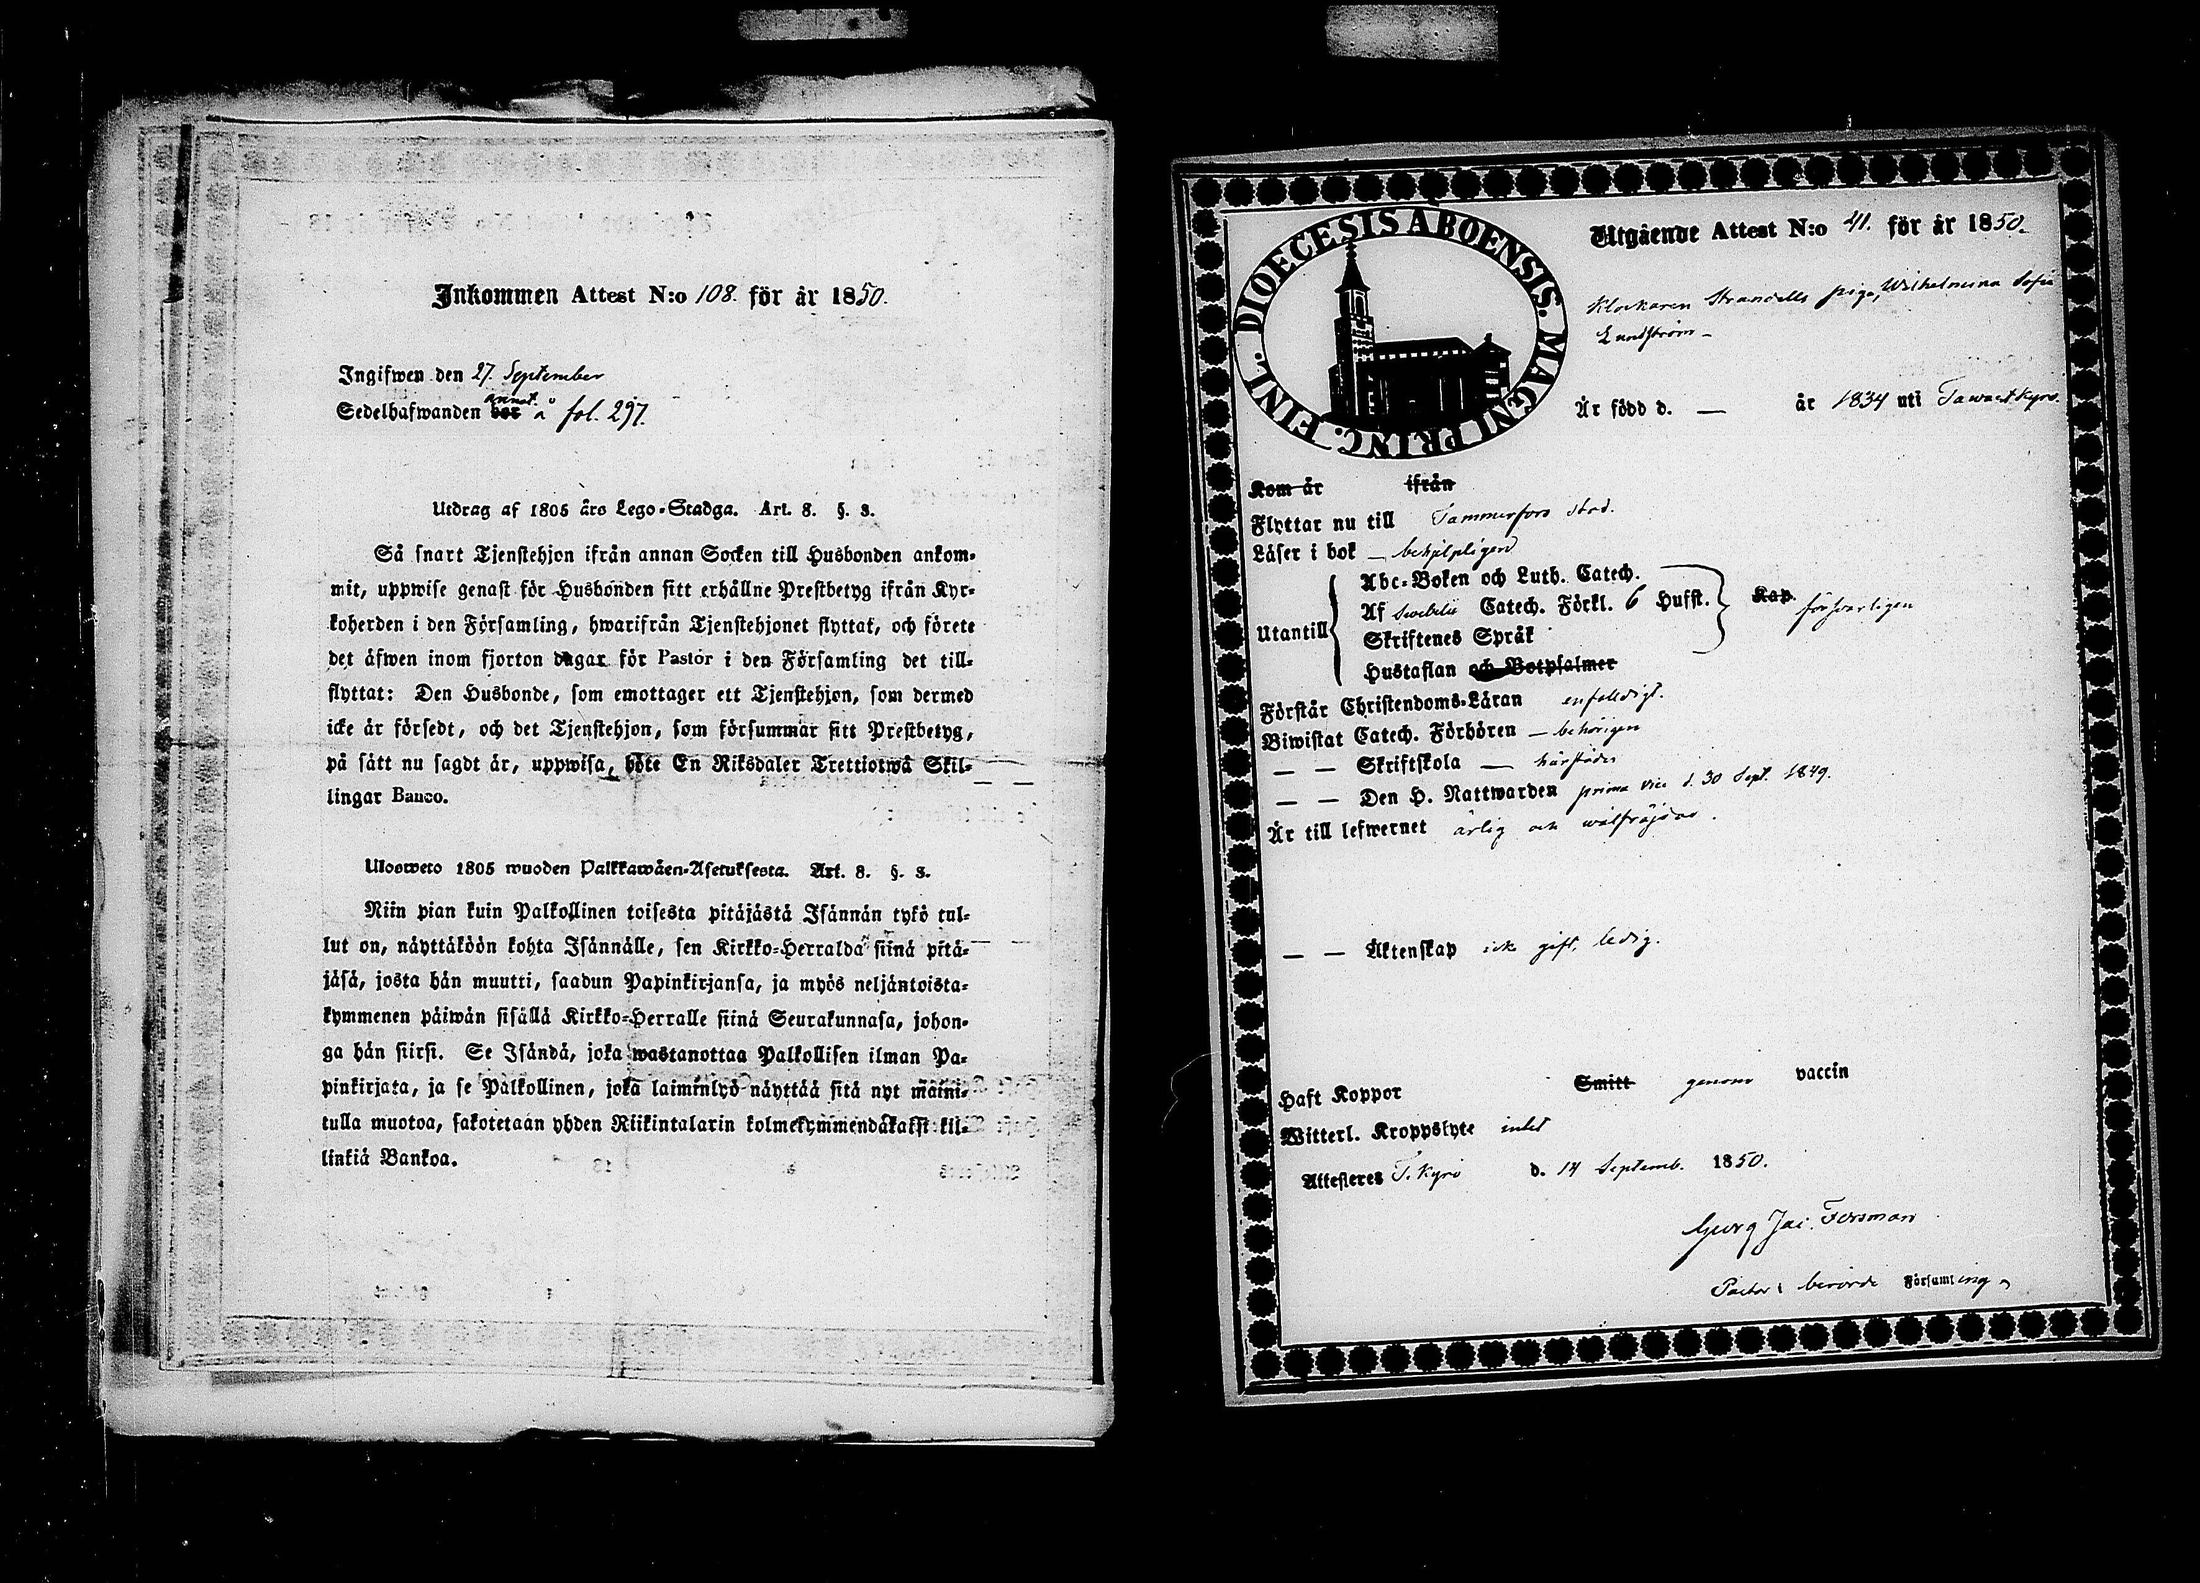 Inkommen Attest N:o 108. för år 1850.
Ingifwen den 27. September
annot.
Sedelhafwanden bor å fol. 297.
Utdrag af 1805 års Lego-Stadga. Art. 8. §. 3.
Så snart Tjenstehjon ifrån annan Socken till Husbonden ankom-
mit, uppwise genast för Husbonden sitt erhållne Prestbetyg ifrån Kyr-
koherden i den Församling, hwarifrån Tjenstehjonet flyttat, och förete
det äfwen inom fjorton dagar för Pastor i den Församling det till-
flyttat: Den Husbonde, som emottager ett Tjenstehjon, som dermed
icke är försedt, och det Tjenstehjon, som försummar sitt Prestbetyg,
på sätt nu sagdt är, uppwisa, böte En Riksdaler Trettiotwå Skil-
lingar Banco.
Ulosweto 1805 wuoden Palkkawäen-Asetuksesta. Art. 8. §. 3.
Niin pian kuin Palkollinen toisesta pitäjästä Isännän tykö tul-
lut on, näyttäköön kohta Isännälle, sen Kirkko-Herralda siinä pitä-
jäsä, josta hän muutti, saadun Papinkirjansa, ja myös neljäntoista-
kymmenen päiwän sisällä Kirkko-Herralle siinä Seurakunnasa, johon-
ga hän siirsi. Se Isändä, joka wastanottaa Palkollisen ilman Pa-
pinkirjata, ja se Palkollinen, joka laiminlyö näyttää sitä nyt maini-
tulla muotoa, sakotetaan yhden Riikintalarin kolmekymmendäkaksi kil-
linkiä Bankoa.
DIOECESIS ABOENSIS. MAGNI PRINC. FINL.
Utgående Attest N:o 41. för år 1850.
Klockaren Strandells piga, Wilhelmina Sofia
Lundström –
Är född d. — år 1834 uti Tawastkyro.
Kom år ifrån
Flyttar nu till Tammerfors stad.
Läser i bok – behjelpligen
Abc-Boken och Luth. Catech.
Af Swebelii Catech. Förkl. 6 Hufst. Kap. försvarligen
Utantill
Skriftenes Språk
Hustaflan och Botpsalmer
Förstår Christendoms-Läran enfaldigt.
Biwistat Catech. Förhören – behörigen
— — Skriftskola — härstädes
— — Den H. Nattwarden prima vice d. 30 Sept. 1849.
Är till lefwernet ärlig och wälfräjdad.
— — Äktenskap icke gift, ledig.
Haft Koppor Smitt genom vaccin
Witterl. Kroppslyte intet
Attesteres T. Kyro d. 14 Septemb. 1850.
Georg Jac. Forsman
Pastor i berörde Församling